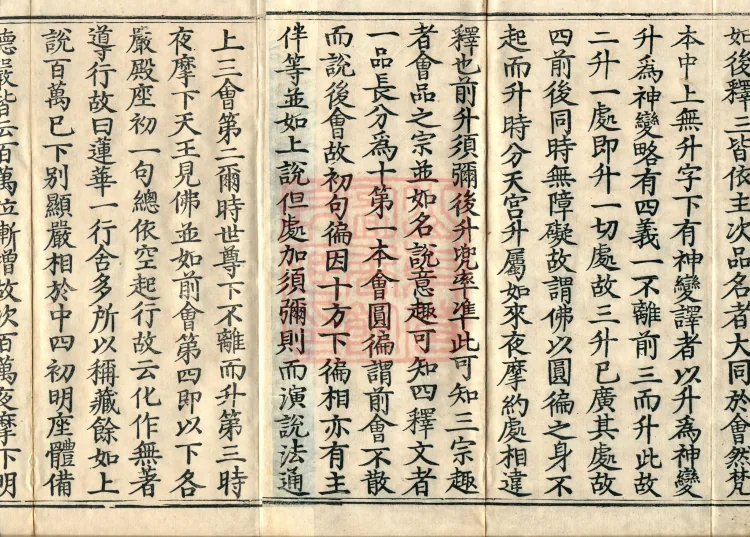 如後釋三皆依主次品名者大同於會然梵
本中上無升字下有神變譯者以升為神變
升為神變略有四義一不離前三而升此故
二升一處即升一切處故三升已廣其處故
四前後同時無障礙故謂佛以圓徧之身不
起而升時分天宮升屬如來夜摩約處相違
釋也前升須彌後升兜率准此可知三宗趣
者會品之宗並如名說意趣可知四釋文者
一品長分為十第一本會圓徧謂前會不散
而說後會故初句徧因十方下徧相亦有主
伴等並如上說但處加須彌則而演說法通
上三會第二爾時世尊下不離而升第三時
夜摩下天王見佛並如前會第四即以下各
嚴殿座初一句總依空起行故云化作無著
導行故曰蓮華一行舍多所以稱藏餘如上
說百萬已下別顯嚴相於中四初明座體備
德嚴皆云百萬位漸增故次百萬夜摩下明